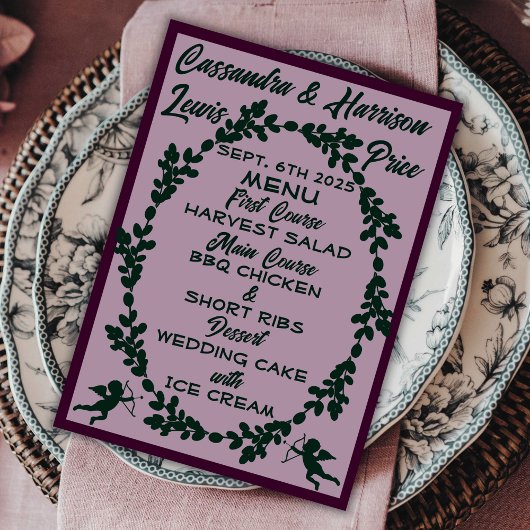 Cassandra & Harrison
Lewis Price
SEPT. 6TH 2025
MENU
First Course
HARVEST SALAD
Main Course
BBQ CHICKEN
&
SHORT RIBS
Dessert
WEDDING CAKE
with
ICE CREAM